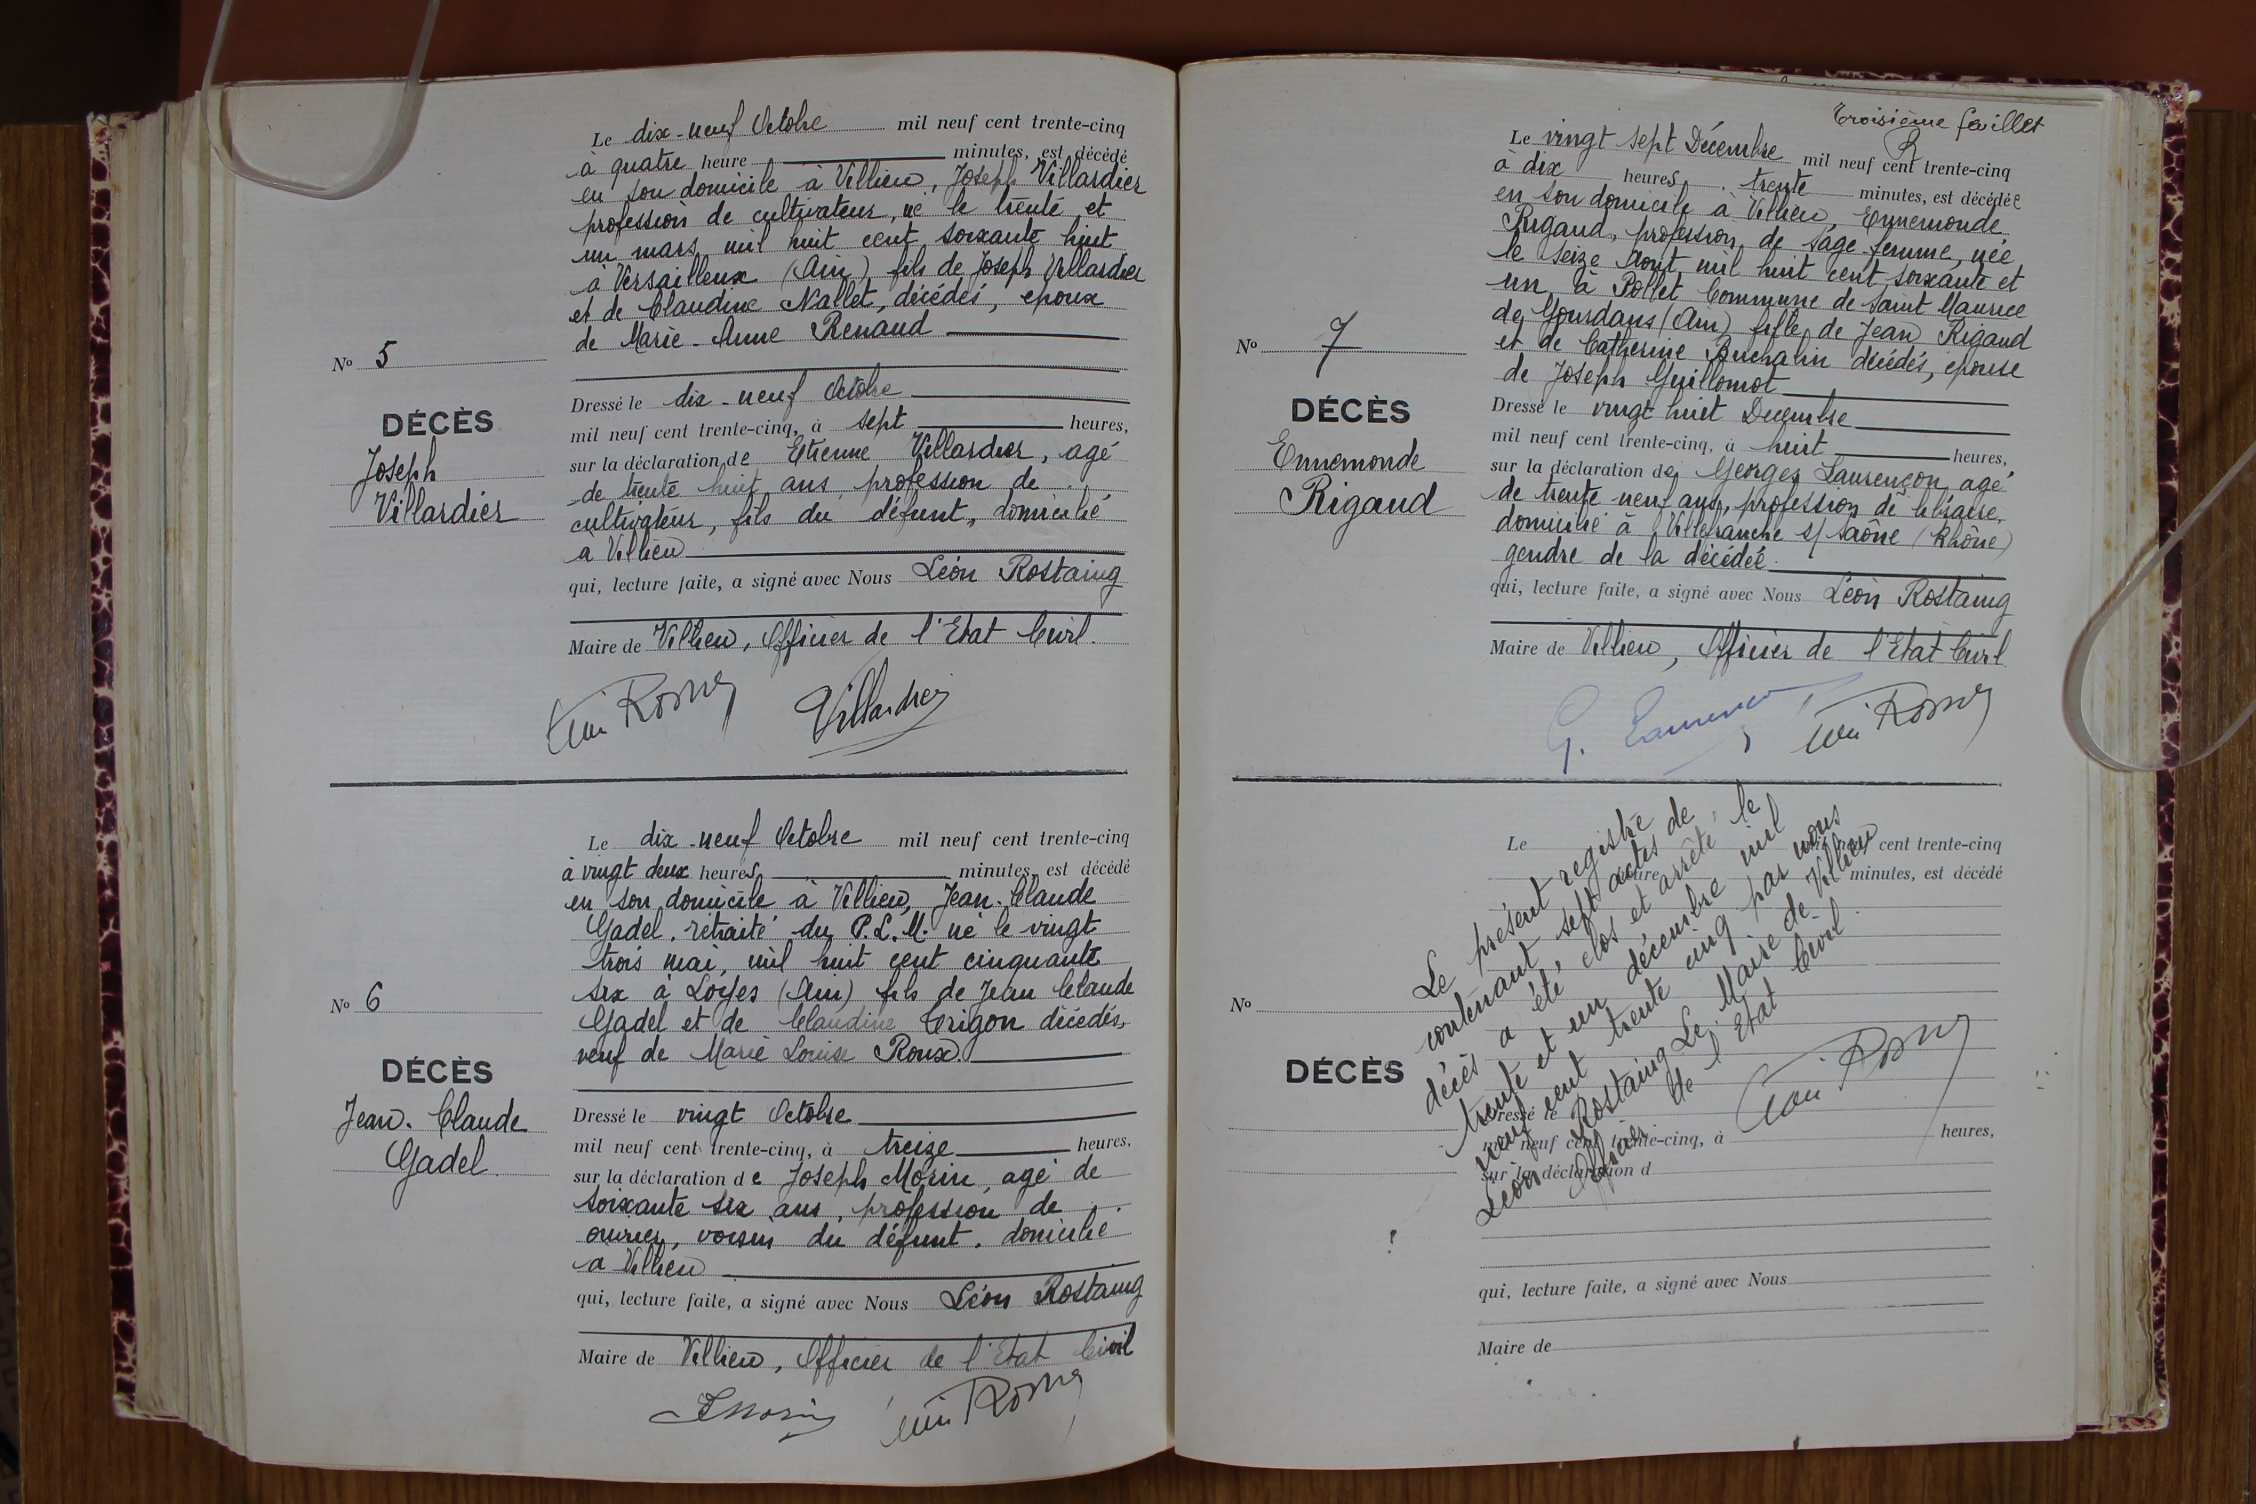 Le dix-neuf Octobre mil neuf cent trente-cinq
à quatre heure minutes, est décédé
en son domicile à Villieu, Joseph Villardier
profession de cultivateur, né le trente et
un mars mil huit cent soixante huit
à Versailleux (Ain) fils de Joseph Villardier
et de Claudine Nallet, décédés, epoux
de Marie-Anne Renaud
No 5
DÉCÈS
Joseph
Villardier
Dressé le dix-neuf Octobre
mil neuf cent trente-cinq, à sept heures,
sur la déclaration de Etienne Villardier, agé
de trente huit ans, profession de
cultivateur, fils du défunt, domicilié
à Villieu
qui, lecture faite, a signé avec Nous Léon Rostaing
Maire de Villieu, Officier de l'Etat Civil.
Villardier
Le dix-neuf Octobre mil neuf cent trente-cinq
à vingt deux heures minutes, est décédé
en son domicile à Villieu, Jean-Claude
Gadel, retraité du P.L.M. né le vingt
trois mai, mil huit cent cinquante
six à Loyes (Ain) fils de Jean Claude
Gadel et de Claudine Crigon décédés,
veuf de Marie Louise Roux.
No 6
DÉCÈS
Jean-Claude
Gadel
Dressé le vingt Octobre
mil neuf cent trente-cinq, à treize heures,
sur la déclaration de Joseph Morin, agé de
soixante six ans, profession de
ouvrier, voisin du défunt, domicilié
à Villieu
qui, lecture faite, a signé avec Nous Léon Rostaing
Maire de Villieu, Officier de l'Etat Civil
Troisième feuillet
R
Le vingt sept Décembre mil neuf cent trente-cinq
à dix heures trente minutes, est décédée
en son domicile à Villieu, Ennemonde
Rigaud, profession de sage-femme, née
le seize Aout mil huit cent soixante et
un à Pollet Commune de Saint Maurice
de Gourdans (Ain) fille de Jean Rigaud
et de Catherine décédés, épouse
de Joseph Guillomot
No 7
DÉCÈS
Ennemonde
Rigaud
Dressé le vingt huit Decembre
mil neuf cent trente-cinq, à huit heures,
sur la déclaration de Georges Laurençon, agé
de trente-neuf ans, profession de libraire,
domicilié à Villefranche s/ Saône (Rhône)
gendre de la décédée.
qui, lecture faite, a signé avec Nous Léon Rostaing
Maire de Villieu, Officier de l'Etat Civil
Le cent trente-cinq
heure minutes, est décédé
No
DÉCÈS
Le présent registre
contenant sept actes de
décès a été clos et arrêté le
trente et un décembre mil
neuf cent trente cinq par nous
Léon Rostaing Le Maire de Villieu
Officier de l'Etat Civil
Dressé le
mil neuf cent trente-cinq, à heures,
sur la déclaration d
qui, lecture faite, a signé avec Nous
Maire de